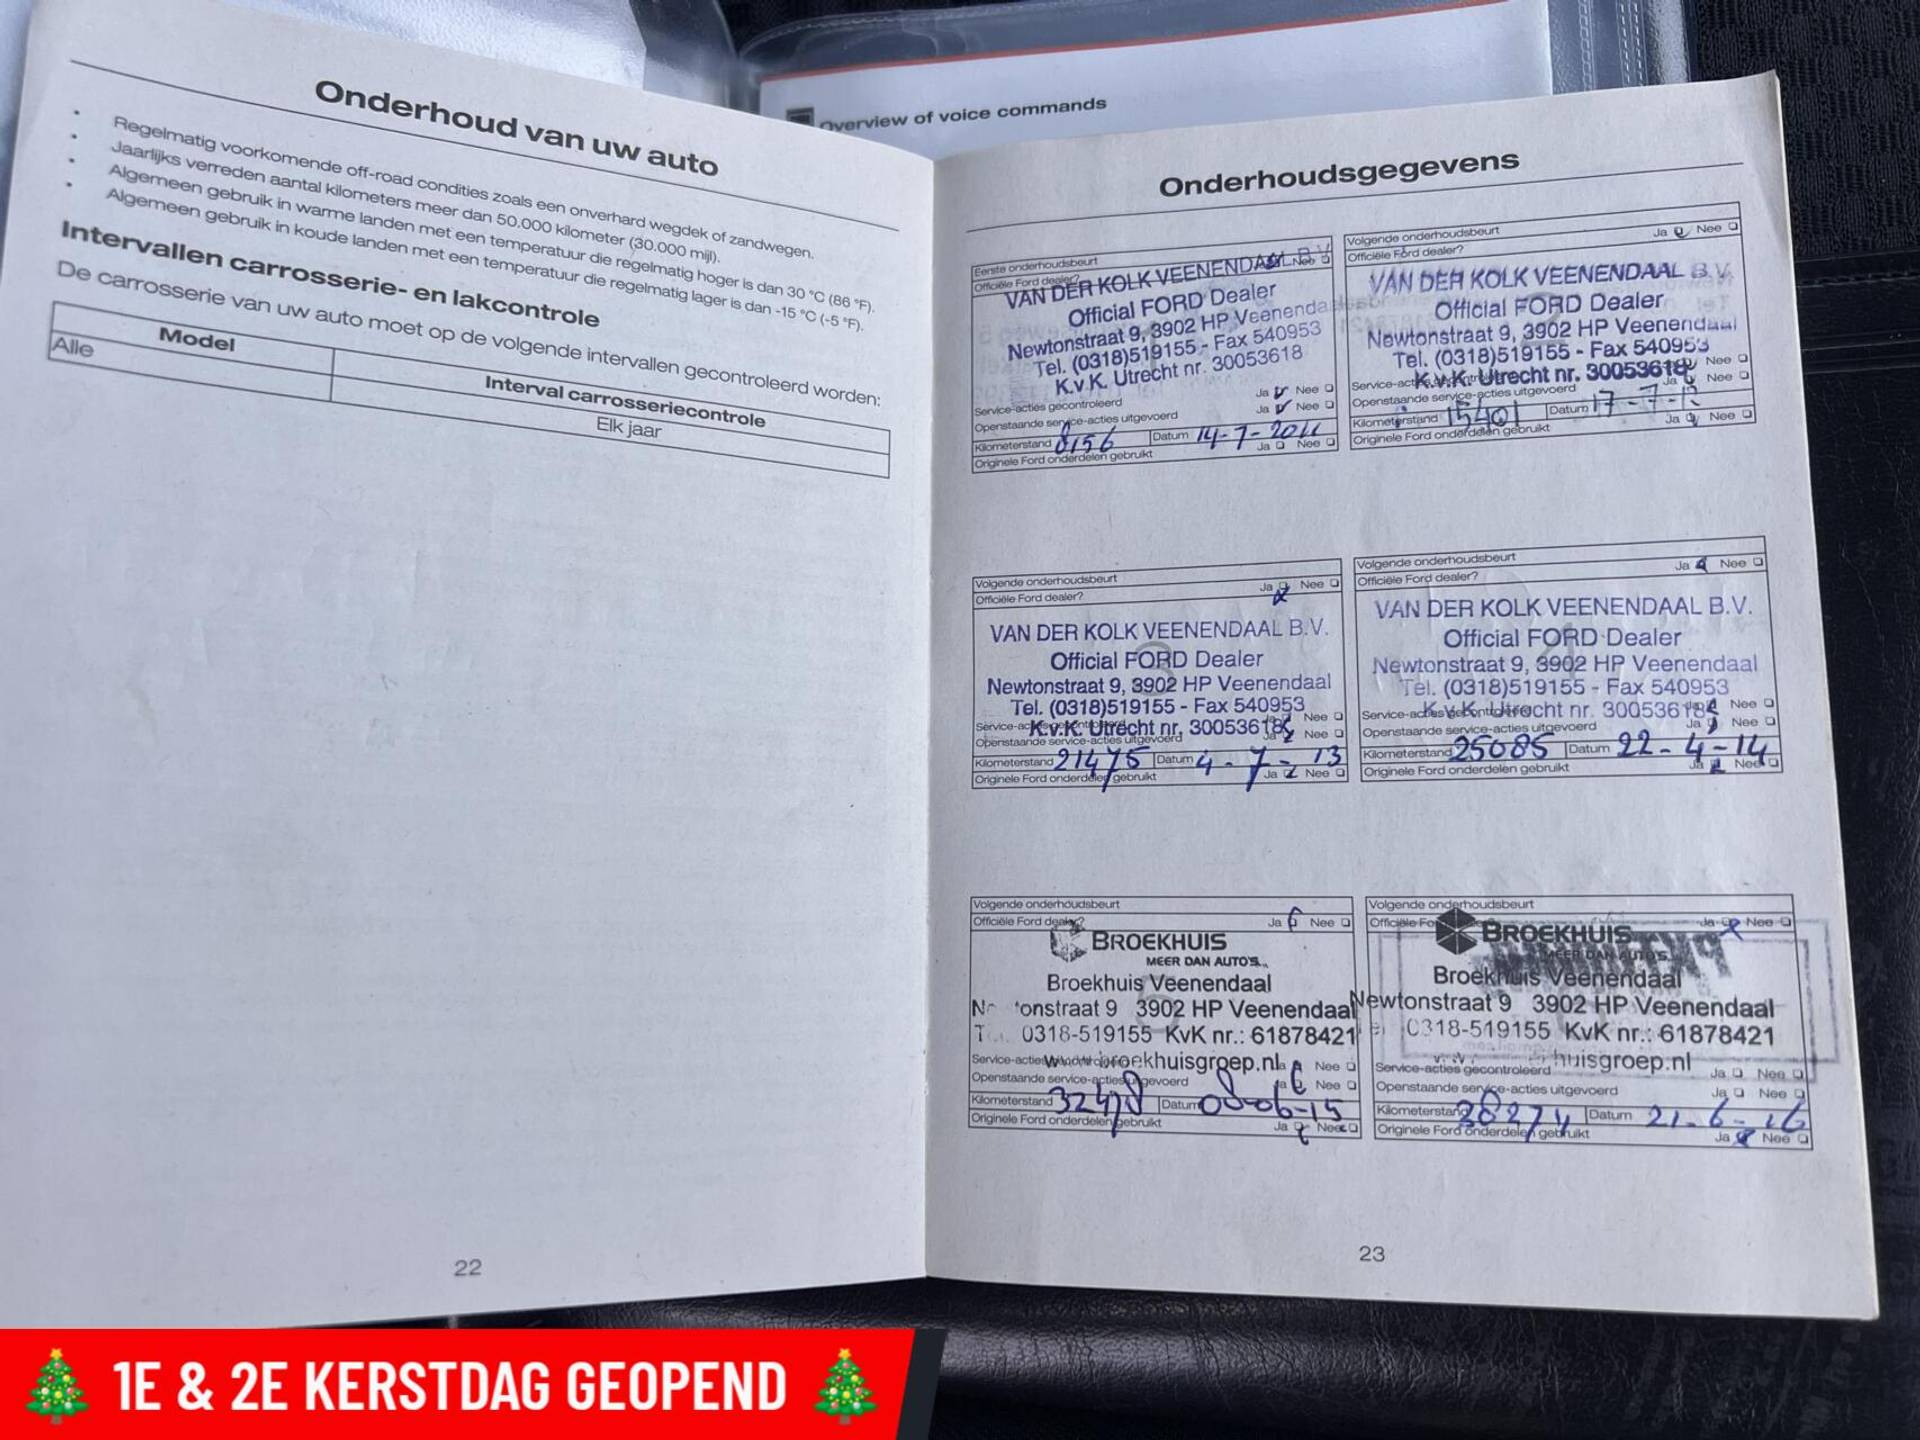 Overview of voice commands
Onderhoud van uw auto
• Regelmatig voorkomende off-road condities zoals een onverhard wegdek of zandwegen.
• Jaarlijks verreden aantal kilometers meer dan 50.000 kilometer (30.000 mijl).
• Algemeen gebruik in warme landen met een temperatuur die regelmatig hoger is dan 30 °C (86 °F).
• Algemeen gebruik in koude landen met een temperatuur die regelmatig lager is dan -15 °C (-5 °F).
Intervallen carrosserie- en lakcontrole
De carrosserie van uw auto moet op de volgende intervallen gecontroleerd worden:
Model
Interval carrosseriecontrole
Alle
Elk jaar
22
Onderhoudsgegevens
Eerste onderhoudsbeurt
Officiële Ford dealer? Nee
VAN DER KOLK VEENENDAAL B.V.
Official FORD Dealer
Newtonstraat 9, 3902 HP Veenendaal
Tel. (0318)519155 - Fax 540953
K.v.K. Utrecht nr. 30053618
Service-acties gecontroleerd Ja Nee
Openstaande service-acties uitgevoerd Ja Nee
Kilometerstand 8156 Datum 14-7-2011
Originele Ford onderdelen gebruikt Ja Nee
Volgende onderhoudsbeurt
Officiële Ford dealer? Ja Nee
VAN DER KOLK VEENENDAAL B.V.
Official FORD Dealer
Newtonstraat 9, 3902 HP Veenendaal
Tel. (0318)519155 - Fax 540953
K.v.K. Utrecht nr. 30053618
Nee
Openstaande service-acties uitgevoerd Ja Nee
Kilometerstand 15401 Datum 17-7-12
Originele Ford onderdelen gebruikt Ja Nee
Volgende onderhoudsbeurt
Officiële Ford dealer? Ja Nee
3
VAN DER KOLK VEENENDAAL B.V.
Official FORD Dealer
Newtonstraat 9, 3902 HP Veenendaal
Tel. (0318)519155 - Fax 540953
K.v.K. Utrecht nr. 30053618
Nee
Openstaande service-acties uitgevoerd Ja Nee
Kilometerstand 21475 Datum 4-7-13
Originele Ford onderdelen gebruikt Ja Nee
Volgende onderhoudsbeurt
Officiële Ford dealer? Ja Nee
4
VAN DER KOLK VEENENDAAL B.V.
Official FORD Dealer
Newtonstraat 9, 3902 HP Veenendaal
Tel. (0318)519155 - Fax 540953
K.v.K. Utrecht nr. 30053618
Nee
Openstaande service-acties uitgevoerd Ja Nee
Kilometerstand 25085 Datum 22-4-14
Originele Ford onderdelen gebruikt Ja Nee
Volgende onderhoudsbeurt
Officiële Ford dealer? Ja Nee
BROEKHUIS
MEER DAN AUTO'S...
Broekhuis Veenendaal
onstraat 9 3902 HP Veenendaal
0318-519155 KvK nr.: 61878421
broekhuisgroep.nl
Nee
Openstaande service-acties uitgevoerd Ja Nee
Kilometerstand 32478 Datum 08-06-15
Originele Ford onderdelen gebruikt Ja Nee
Volgende onderhoudsbeurt
Ja Nee
BROEKHUIS
MEER DAN AUTO'S
Broekhuis Veenendaal
Newtonstraat 9 3902 HP Veenendaal
0318-519155 KvK nr.: 61878421
huisgroep.nl
Service-acties gecontroleerd Ja Nee
Openstaande service-acties uitgevoerd Ja Nee
Kilometerstand 38274 Datum 21-6-16
Originele Ford onderdelen gebruikt Ja Nee
23
1E & 2E KERSTDAG GEOPEND